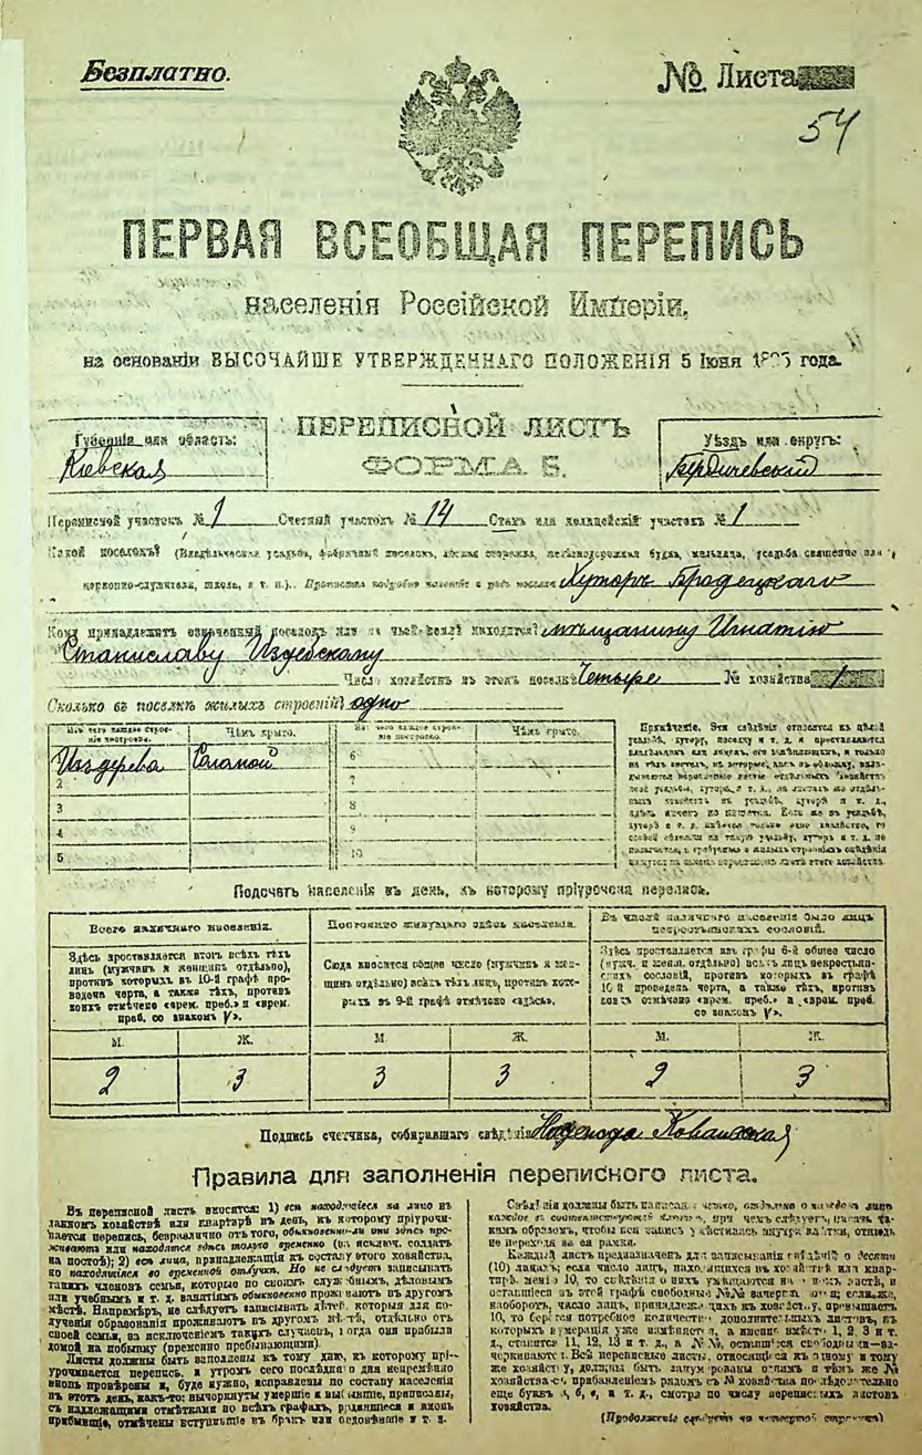 Безплатно.
№ Листа
54
ПЕРВАЯ ВСЕОБЩАЯ ПЕРЕПИСЬ
населенія Россійской Имперіи,
на основаніи ВЫСОЧАЙШЕ УТВЕРЖДЕННАГО ПОЛОЖЕНІЯ 5 Іюня 1895 года.
Губернія или область:
Кіевская
ПЕРЕПИСНОЙ ЛИСТЪ
ФОРМА Б.
Уѣздъ или округъ:
Бердичевскій
Переписной участокъ № 1 Счетный участокъ № 14 Станъ или полицейскій участокъ № 1
Какой поселокъ? (Владѣльческая усадьба, фабричный поселокъ, лѣсная сторожка, желѣзнодорожная будка, мельница, усадьба священно или
церковно-служителя, школа, и т. п.). Прописать подробно названіе и родъ поселка Хуторъ Бродецкаго
Кому принадлежитъ означенный поселокъ или на чьей землѣ находится? мѣщанину Игнатію
Станиславу Издебскому
Число хозяйствъ въ этомъ поселкѣ Четыре № хозяйства 1
Сколько въ поселкѣ жилыхъ строеній? одно
Изъ чего каждое строеніе построено.
Чѣмъ крыто.
Изъ чего каждое строеніе построено.
Чѣмъ крыто.
Изъ дерева Соломой 6
2 7
3 8
4 9
5 10
Примѣчаніе. Эти свѣдѣнія относятся къ цѣлой
усадьбѣ, хутору, поселку и т. д. и проставляются
Подсчетъ населенія въ день, къ которому пріурочена перепись.
Всего наличнаго населенія.
Здѣсь проставляется итогъ всѣхъ тѣхъ
лицъ (мужчинъ и женщинъ отдѣльно),
противъ которыхъ въ 10-й графѣ про-
ведена черта, а также тѣхъ, противъ
коихъ отмѣчено «врем. преб.» и «врем.
преб. со знакомъ V».
Постоянно живущаго здѣсь населенія.
Сюда вносится общее число (мужчинъ и жен-
щинъ отдѣльно) всѣхъ тѣхъ лицъ, противъ кото-
рыхъ въ 9-й графѣ отмѣчено «здѣсь».
Въ числѣ наличнаго населенія было лицъ
некрестьянскихъ сословій.
Здѣсь проставляется изъ графы 6-й общее число
(мужч. и женщ. отдѣльно) всѣхъ лицъ некрестьян-
скихъ сословій, противъ которыхъ въ графѣ
10-й проведена черта, а также тѣхъ, противъ
коихъ отмѣчено «врем. преб.» и «врем. преб.
со знакомъ V».
М. Ж. М. Ж. М. Ж.
2 3 3 3 2 3
Подпись счетчика, собиравшаго свѣдѣнія Надежда
Правила для заполненія переписного листа.
Въ переписной листъ вносится: 1) всѣ находящіеся на лицо въ
данномъ хозяйствѣ или квартирѣ въ день, къ которому пріурочи-
вается перепись, безразлично отъ того, обыкновенно-ли они здѣсь про-
живаютъ или находятся здѣсь только временно (въ исключ. солдатъ
на постоѣ); 2) всѣ лица, принадлежащія къ составу этого хозяйства,
но находящіеся во временной отлучкѣ. Но не слѣдуетъ записывать
такихъ членовъ семьи, которые по своимъ служебнымъ, дѣловымъ
или учебнымъ и т. д. занятіямъ обыкновенно проживаютъ въ другомъ
мѣстѣ. Напримѣръ, не слѣдуетъ записывать дѣтей, которыя для по-
лученія образованія проживаютъ въ другомъ мѣстѣ, отдѣльно отъ
своей семьи, за исключеніемъ такихъ случаевъ, когда они прибыли
домой на побывку (временно пребывающими).
Листы должны быть заполнены къ тому дню, къ которому прі-
урочивается перепись, и утромъ сего послѣдняго дня непремѣнно
вновь провѣрены и, буде нужно, исправлены по составу населенія
въ этотъ день, какъ-то: вычеркнуты умершіе и выбывшіе, приписаны,
съ надлежащими отмѣтками во всѣхъ графахъ, родившіеся и вновь
прибывшіе, отмѣчены вступившіе въ бракъ или овдовѣвшіе и т. д.
Свѣдѣнія должны быть написаны четко, отдѣльно о каждомъ лицѣ
каждое въ соотвѣтствующей клеткѣ, при чемъ слѣдуетъ писать та-
кимъ образомъ, чтобы вся запись умѣстилась внутри клѣтки, отнюдь
не переходя за ея рамки.
Каждый листъ предназначенъ для записыванія свѣдѣній о десяти
(10) лицахъ; если число лицъ, находящихся въ хозяйствѣ или квар-
тирѣ, менѣе 10, то свѣдѣнія о нихъ умѣщаются на одномъ листѣ, и
оставшіеся въ этой графѣ свободные №№ вычеркиваются; если-же,
наоборотъ, число лицъ, принадлежащихъ къ хозяйству, превышаетъ
10, то берется потребное количество дополнительныхъ листовъ, въ
которыхъ нумерація уже измѣняется, а именно вмѣсто 1, 2, 3 и т.
д., ставится 11, 12, 13 и т. д., а №№, оставшіеся свободными—за-
черкиваются. Всѣ переписные листы, относящіеся къ одному и тому
же хозяйству, должны быть занумерованы однимъ и тѣмъ же №
хозяйства съ прибавленіемъ рядомъ съ № хозяйства послѣдовательно
еще буквъ а, б, в, и т. д., смотря по числу переписныхъ листовъ
хозяйства.
(Продолженіе слѣдуетъ на четвертой страницѣ)